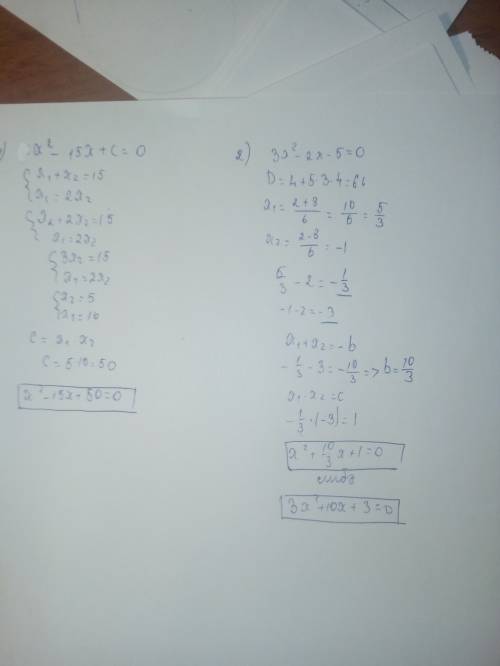 ) x² - 15x + C = 0
{ x₁ + x₂ = 15
x₁ = 2x₂
{ x₂ + 2x₂ = 15
x₁ = 2x₂
{ 3x₂ = 15
x₁ = 2x₂
{ x₂ = 5
x₁ = 10
C = x₁ · x₂
C = 5·10 = 50
x² - 15x + 50 = 0
2) 3x² - 2x - 5 = 0
D = 4 + 5·3·4 = 64
x₁ = (2+8)/6 = 10/6 = 5/3
x₂ = (2-8)/6 = -1
5/3 - 2 = -1/3
-1-2 = -3
x₁ + x₂ = -b
-1/3 - 3 = -10/3 => b = 10/3
x₁ · x₂ = c
-1/3 · (-3) = 1
x² + 10/3 x + 1 = 0
либо
3x² + 10x + 3 = 0